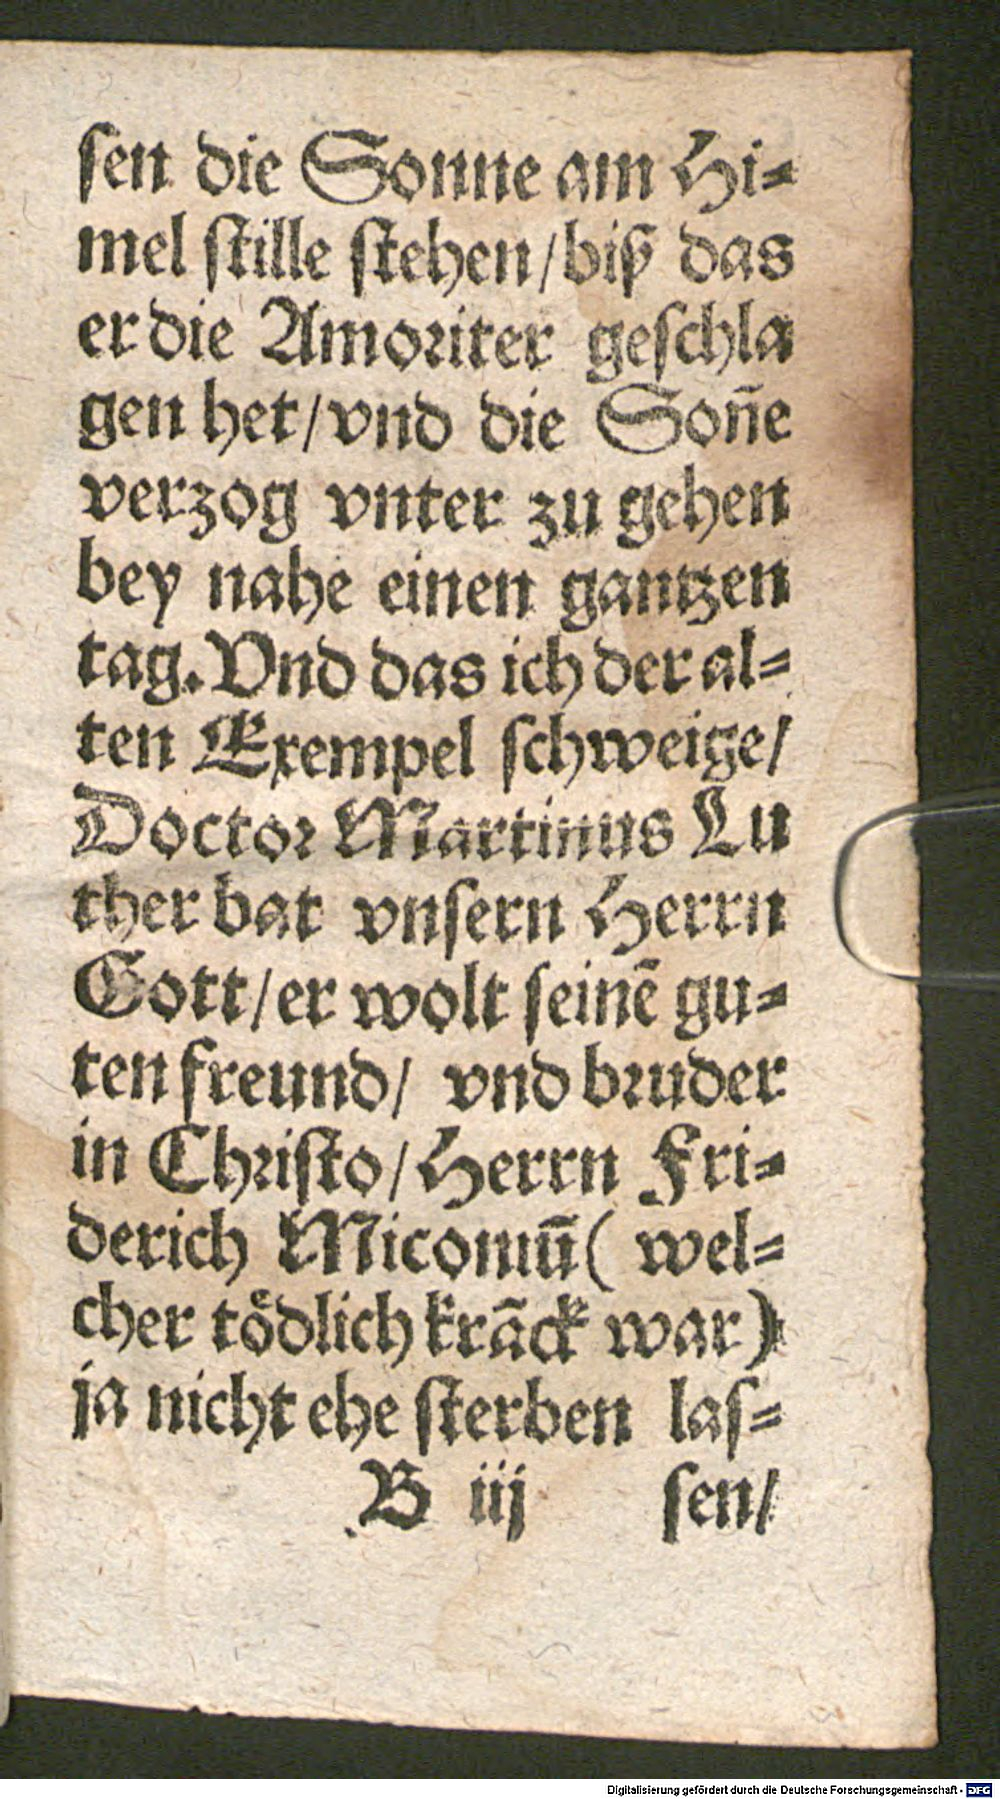 ſen die Sonne am Hi⸗
mel ſtille ſtehen/biß das
er die Amoriter geſchla
gen het/vnd die Soñe
verzog vnter zu gehen
bey nahe einen gantzen
tag. Vnd das ich der al⸗
ten Exempel ſchweige/
Doctor Martinus Lu
ther bat vnſern Herrn
Gott/er wolt ſeinē gu⸗
ten freund/ vnd bruder
in Chriſto/Herrn Fri⸗
derich Miconiū( wel⸗
cher toͤdlich krāck war)
ja nicht ehe ſterben laſ⸗
B iij ſen/
Digitalisierung gefördert durch die Deutsche Forschungsgemeinschaft - DFG